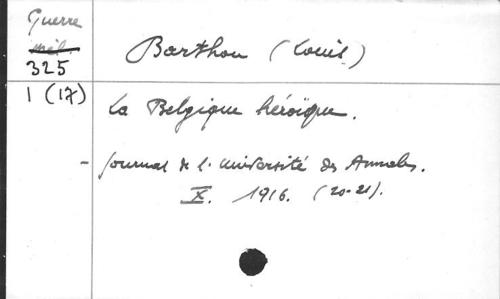 Guerre
mél.
325
Barthou (Louis)
1 (17)
La Belgique héroïque.
- Journal de l'Université des Annales.
X. 1916. (20-21).